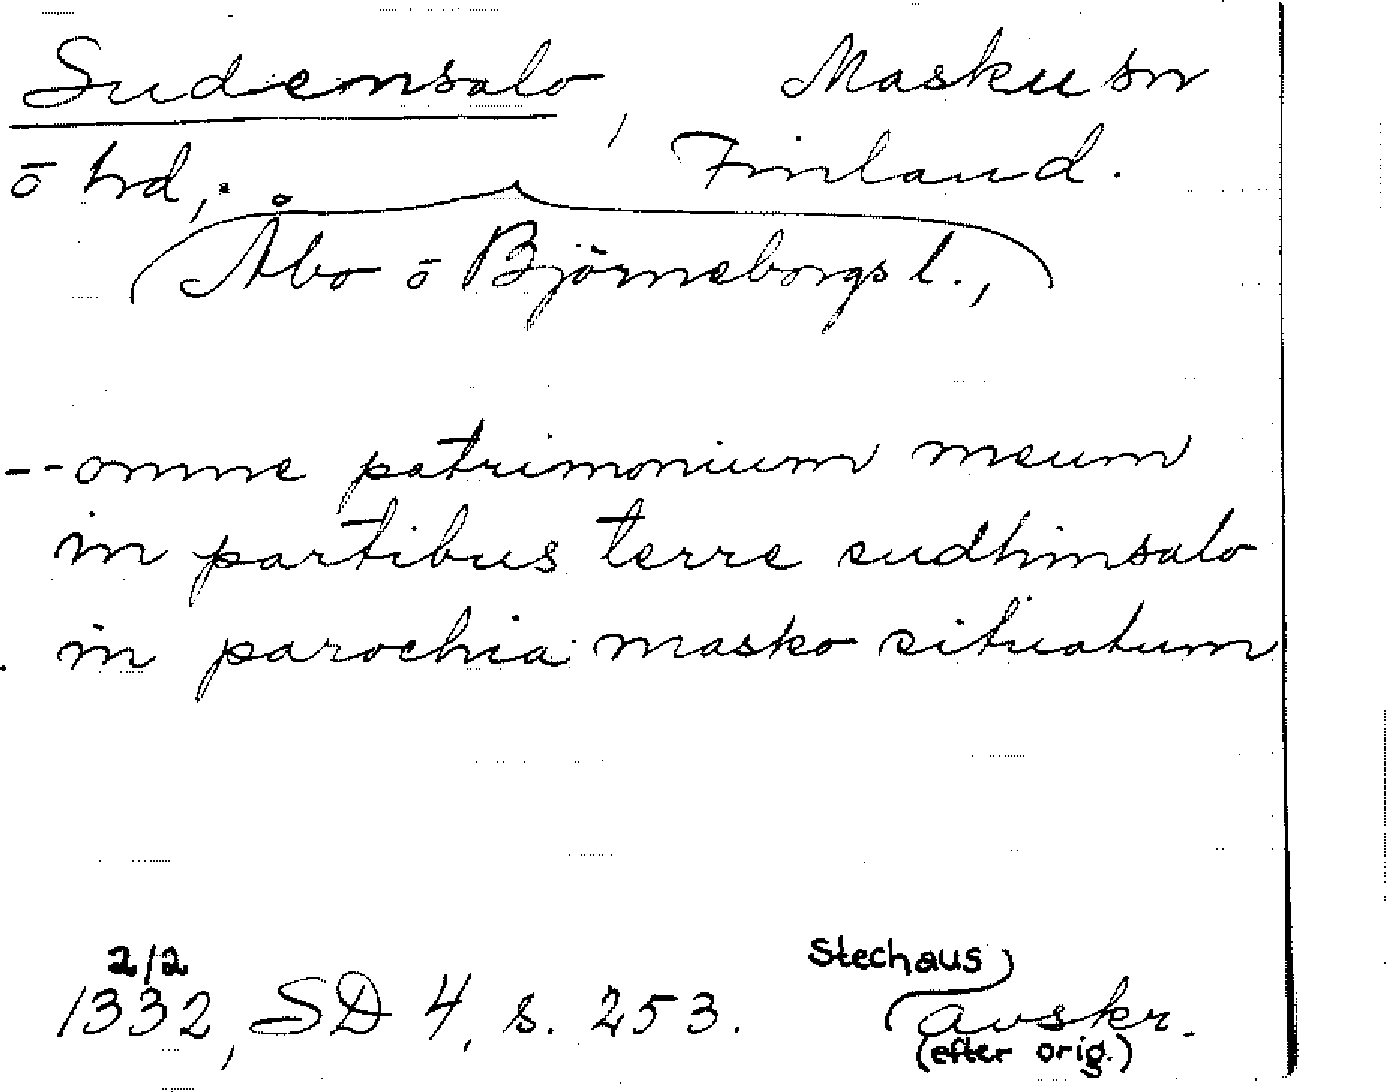 Sudensalo, Masku sn
ō hd, Finland.
Åbo ō Björneborgs l.,
-- omne patrimonium meum
in partibus terre sudhinsalo
in parochia masko situatum
2/2
1332, SD 4, s. 253.
Stechaus
avskr.
(efter orig.)